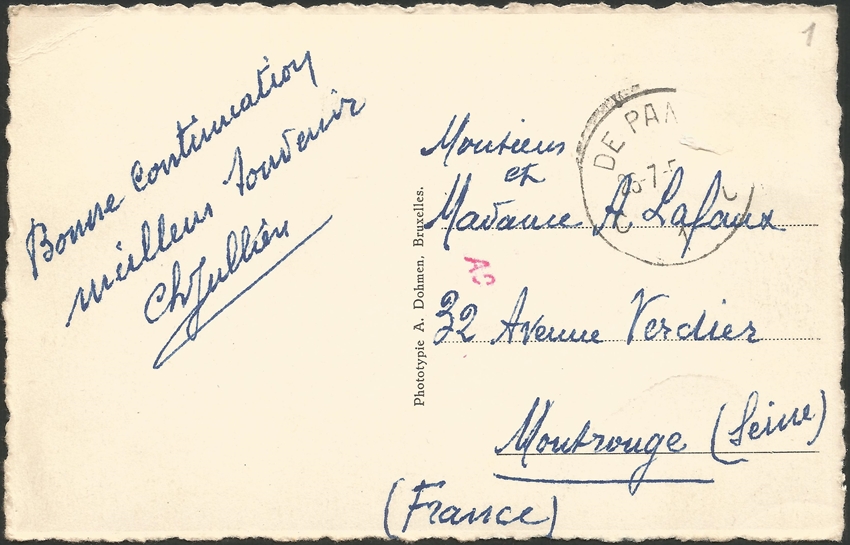 Bonne continuation
meilleur souvenir
Ch Jullien
Phototypie A. Dohmen, Bruxelles.
1
DE PAN
Monsieur
et
Madame A Lafaux
AC
32 Avenue Verdier
Montrouge (Seine)
(France)